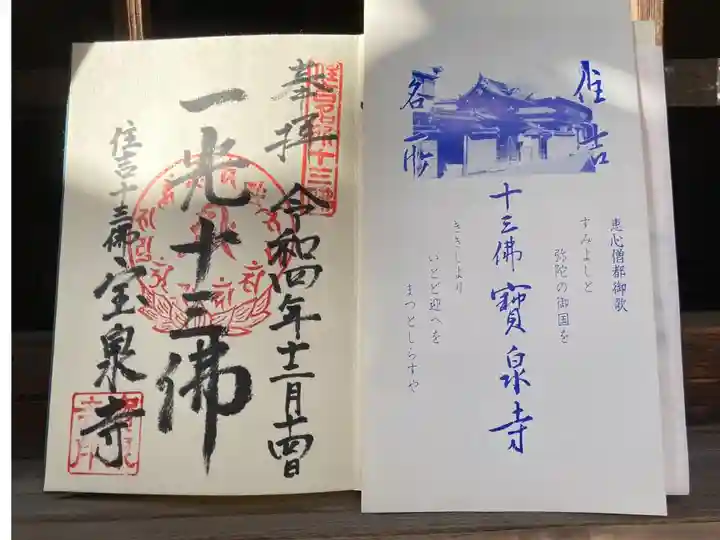 奉拝 令和四年十二月十四日
一光十三佛
住吉十三佛 宝泉寺
住吉
名所
十三佛 寳泉寺
恵心僧都御歌
すみよしと
弥陀の御国を
ききしより
いとど迎へを
まつとしらすや